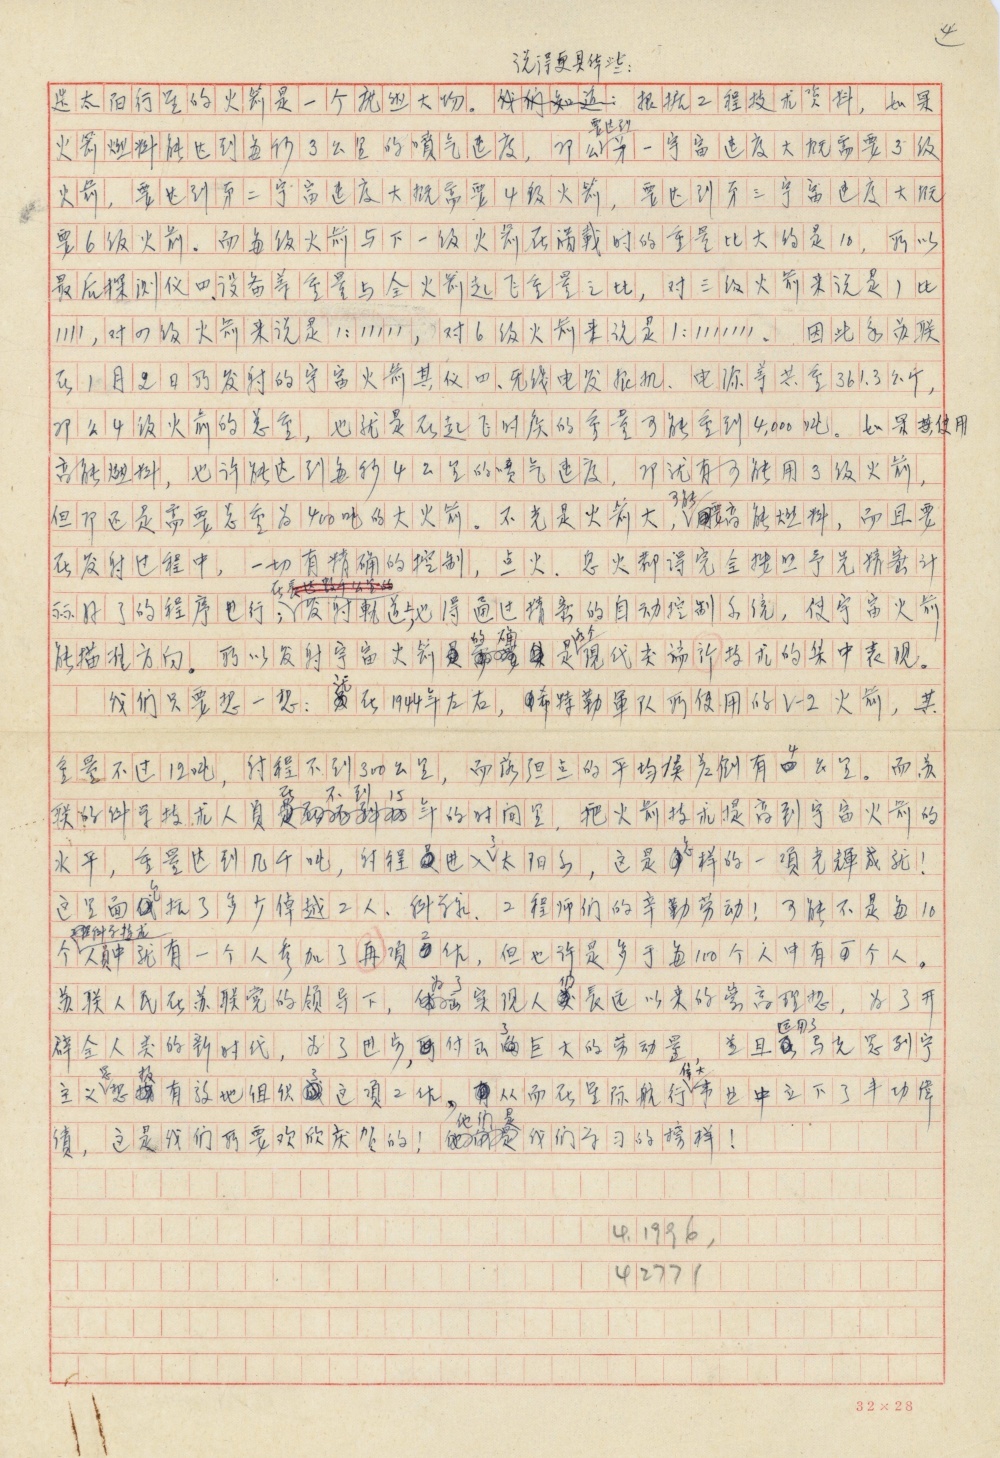 4
说得更具体些：
造太阳行星的火箭是一个庞然大物。我们知道：根据工程技术资料，如果
火箭燃料能达到每秒3公里的喷气速度，那么要达到第一宇宙速度大概需要3级
火箭，要达到第二宇宙速度大概需要4级火箭，要达到第三宇宙速度大概
要6级火箭。而每级火箭与下一级火箭在满载时的重量比大约是10，所以
最后探测仪四设备等重量与全火箭起飞重量之比，对三级火箭来说是1比
1111，对四级火箭来说是1:11111，对6级火箭来说是1:1111111。因此象苏联
在1月2日所发射的宇宙火箭其仪四、无线电发报机、电源等共重361.3公斤，
那么4级火箭的总重，也就是在起飞时候的重量可能重到4,000吨。如果其使用
高能燃料，也许能达到每秒4公里的喷气速度，那就有可能用3级火箭，
但那还是需要总重为400吨的大火箭。不光是火箭大，可能要高能燃料，而且要
在发射过程中，一切有精确的控制，点火、息火都得完全按照予先精密计
算好了的程序进行；在长达数千公里的发射轨道上也得通过精密的自动控制系统，使宇宙火箭
能描准方向。所以发射宇宙火箭的确是整个现代尖端科技术的集中表现。
我们只要想一想：在1944年左右，希特勒军队所使用的V-2火箭，其
重量不过12吨，射程不到300公里，而落弹点的平均误差倒有4公里。而苏
联的科学技术人员在不到15年的时间里，把火箭技术提高到宇宙火箭的
水平，重量达到几千吨，射程进入了太阳系，这是怎样的一项光辉成就！
这里面包括了多少倬越工人、科学家、工程师们的辛勤劳动！可能不是每10
个科学技术人员中就有一个人参加了再项工作，但也许是多于每100个人中有一个人。
苏联人民在苏联党的领导下，为了实现人们长远以来的崇高理想，为了开
辟全人类的新时代，为了进步，付出了巨大的劳动量，并且运用了马克思列宁
主义思想，有效地组织了这项工作。从而在星际航行伟大事业中立下了丰功伟
绩，这是我们所要欢欣庆贺的！他们是我们学习的榜样！
4.1996,
42771
32×28